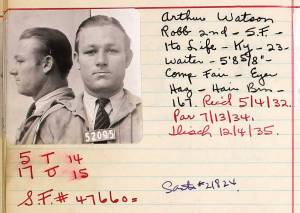 Arthur Watson
Robb 2nd - S.F. -
1 to Life - Ky - 23 -
Waiter - 5' 8 5/8" -
Comp Fair - Eyes
Haz - Hair Brn -
167. Rec'd 5/4/32.
Par 7/13/34.
Disch 12/4/35.
52095
5 T 14
17 U 15
S.F.# 47660=